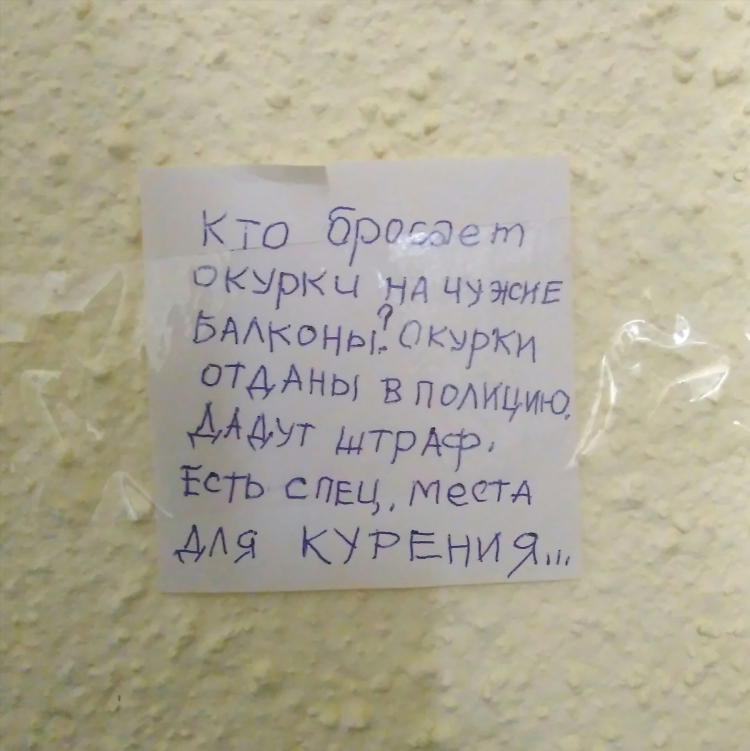 Кто бросает
окурки на чужие
балконы? Окурки
отданы в полицию.
Дадут штраф.
Есть спец. места
для КУРЕНИЯ...